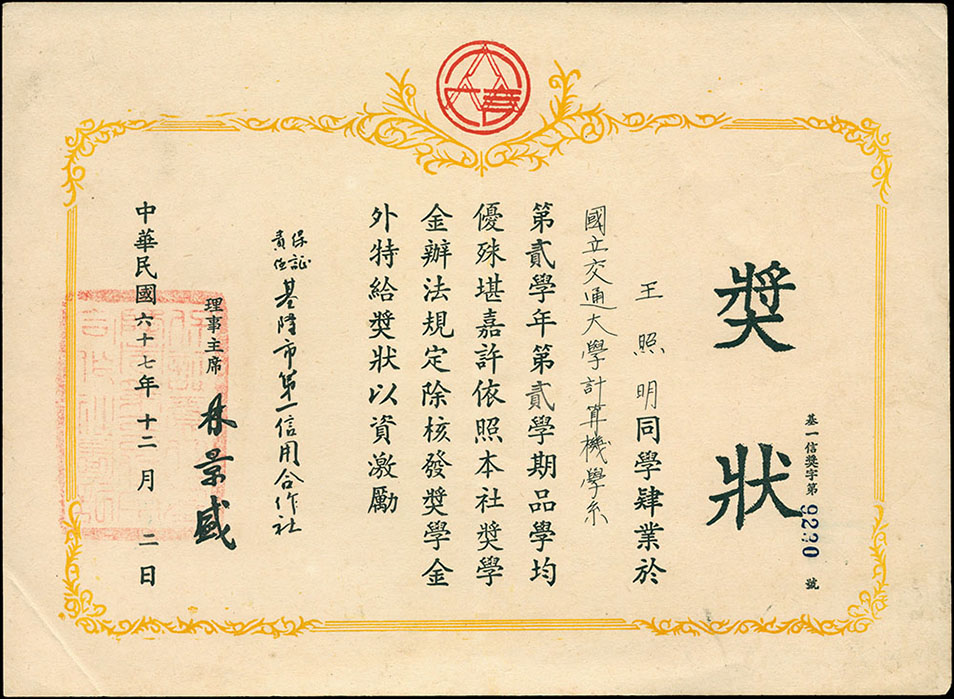 獎狀
基一信獎字第9220號
王照明同學肄業於
國立交通大學計算機學系
第貳學年第貳學期品學均
優殊堪嘉許依照本社獎學
金辦法規定除核發獎學金
外特給獎狀以資激勵
保証
責任
基隆市第一信用合作社
理事主席 林景盛
中華民國六十七年十二月二日